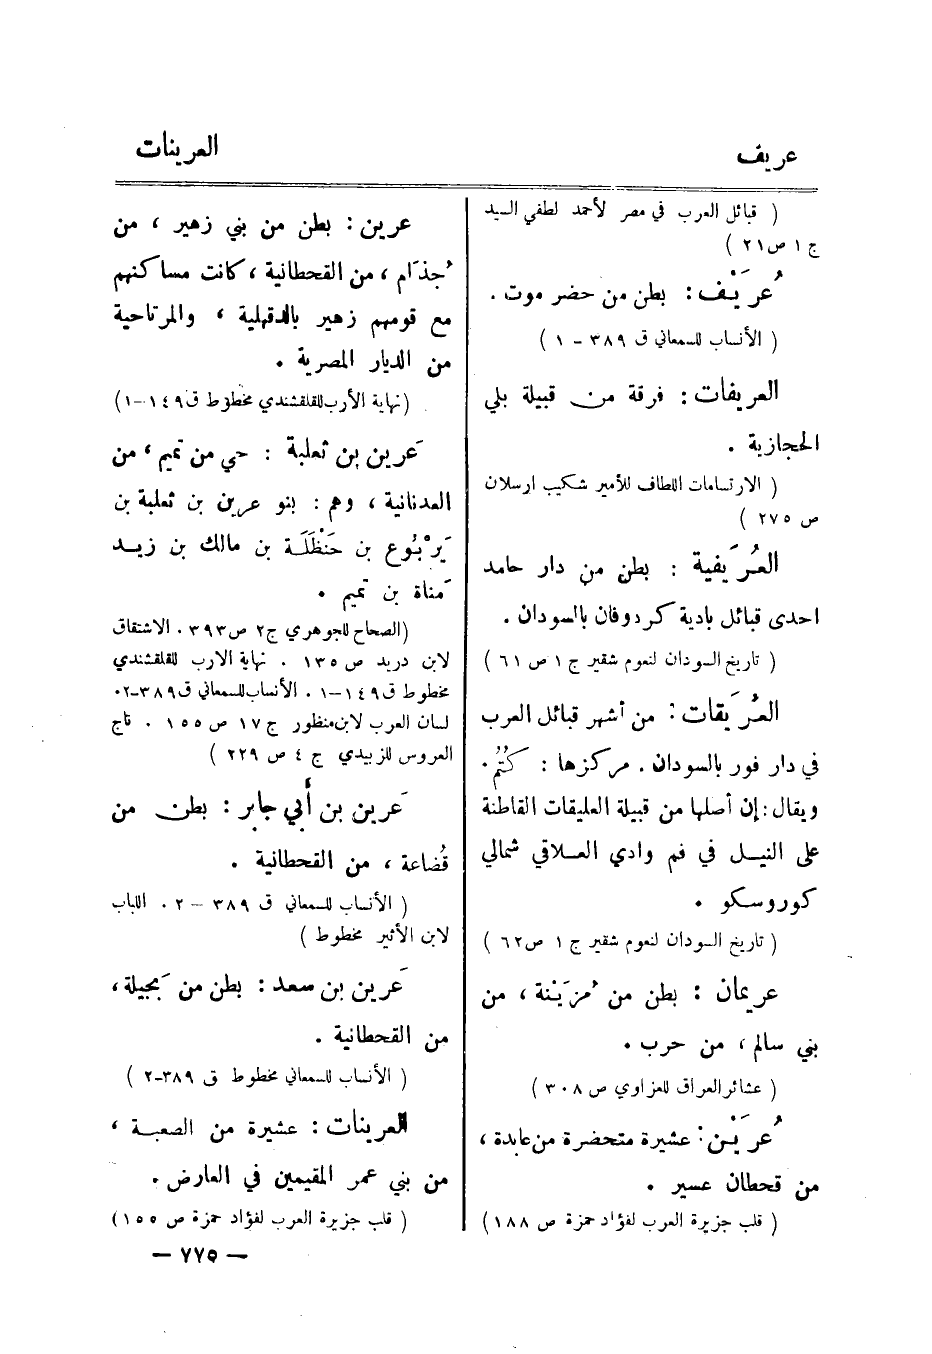 عريف
العرينات
( قبائل العرب في مصر لأحمد لطفي السيد
ج ١ ص٢١ )
عُرَيْف : بطن من حضر موت .
( الأنساب للسمعاني ق ٣٨٩ – ١ )
العريفات : فرقة من قبيلة بلي
الحجازية .
( الارتسامات اللطاف للأمير شكيب ارسلان
ص ٢٧٥ )
العُرَيفية : بطن من دار حامد
احدى قبائل بادية كردوفان بالسودان .
( تاريخ السودان لنعوم شقير ج ١ ص ٦١ )
العُرَيقات : من أشهر قبائل العرب
في دار فور بالسودان . مركزها : كُتُم .
ويقال : إن أصلها من قبيلة العليقات القاطنة
على النيل في فم وادي العلاقي شمالي
كوروسكو .
( تاريخ السودان لنعوم شقير ج ١ ص٦٢ )
عريمان : بطن من مُزَيْنة ، من
بني سالم ، من حرب .
( عشائر العراق للعزاوي ص ٣٠٨ )
عُرَيْن : عشيرة متحضرة من عابدة ،
من قحطان عسير .
( قلب جزيرة العرب لفؤاد حمزة ص ١٨٨ )
عرين : بطن من بني زهير ، من
جُذَام ، من القحطانية ، كانت مساكنهم
مع قومهم زهير بالدقهلية ، والمرتاحية
من الديار المصرية .
(نهاية الأرب للقلقشندي مخطوط ق ١٤٩–١)
عَرين بن ثعلبة : حي من تميم ، من
العدنانية ، وهم : بنو عرين بن ثعلبة بن
يَرْبُوع بن حَنْظَلَة بن مالك بن زيد
مَناة بن تميم .
(الصحاح للجوهري ج٢ ص٣٩٣ . الاشتقاق
لابن دريد ص ١٣٥ . نهاية الارب للقلقشندي
مخطوط ق ١٤٩–١ . الأنساب للسمعاني ق ٣٨٩–٢.
لسان العرب لابن منظور ج ١٧ ص ١٥٥ . تاج
العروس للزبيدي ج ٤ ص ٢٢٩ )
عَرين بن أبي جابر : بطن من
قُضاعة ، من القحطانية .
( الأنساب للسمعاني ق ٣٨٩ – ٢ . اللباب
لابن الأثير مخطوط )
عَرين بن سعد : بطن من بَجيلة ،
من القحطانية .
( الأنساب للسمعاني مخطوط ق ٣٨٩–٢ )
العرينات : عشيرة من الصعبة ،
من بني عمر المقيمين في العارض .
( قلب جزيرة العرب لفؤاد حمزة ص ١٥٥ )
– ٧٧٥ –